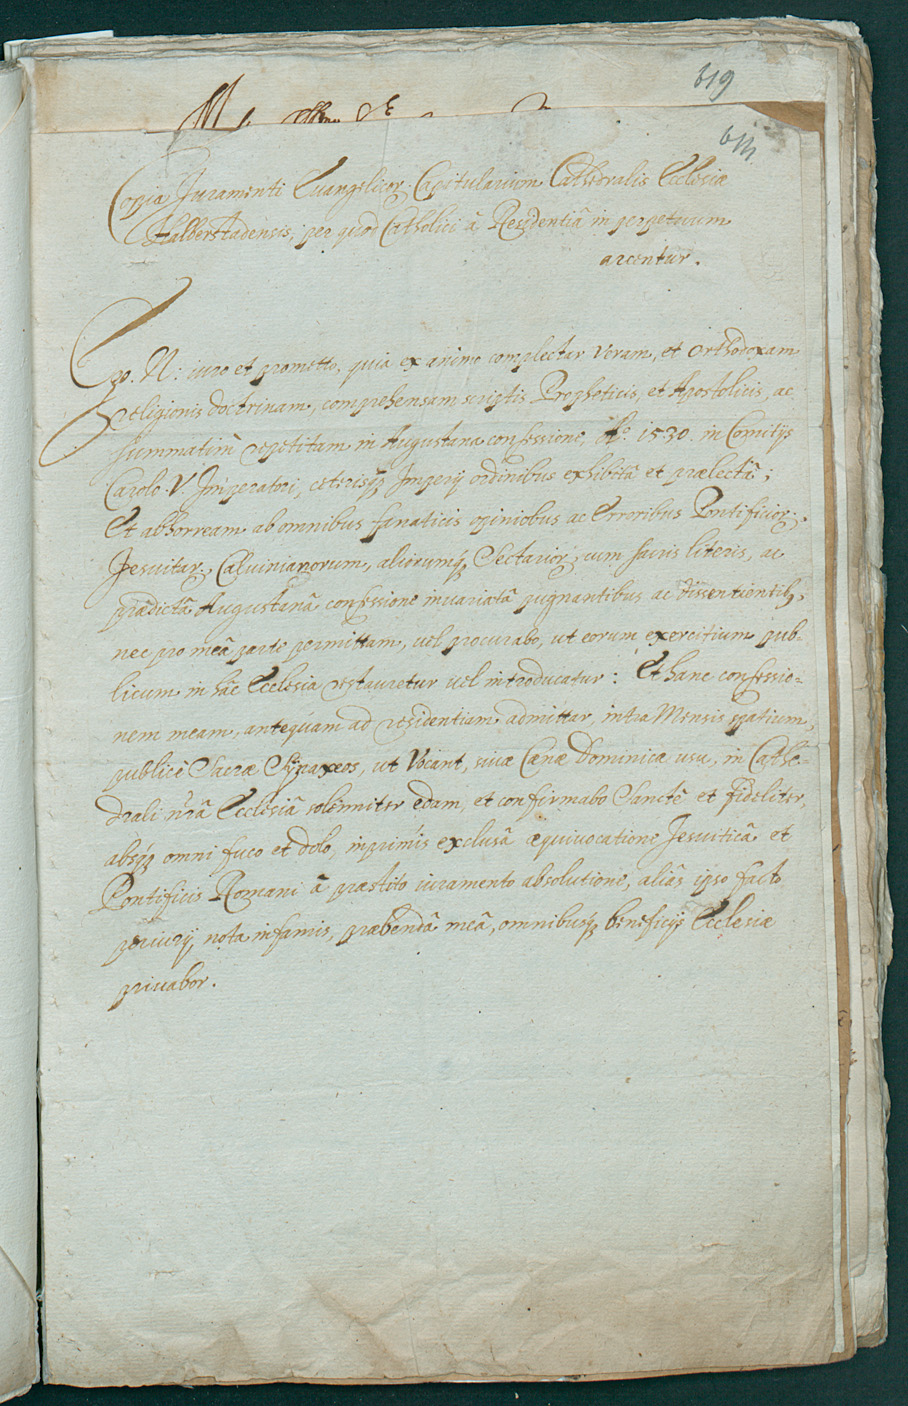 619
Copia Juramenti Euangelicor: Capitularium Cathedralis Ecclesiæ
Halberstadensis, per quod Catholici â Residentiâ in perpetuum
arcentur.
Ego. N: iuro et prometto, quia ex animo complectar veram, et orthodoxam
religionis doctrinam, comprehensam scriptis Propheticis, et Apostolicis, ac
summatim repetitam in Augustana confessione, Aº. 1530. in Comitijs
Carolo. V Imperatori, ceterisq; Imperij ordinibus exhibitâ et prælectâ;
Et abhorream ab omnibus fanaticis opiniobus ac Erroribus Pontificior:,
Jesuitar:, Caluinianorum, aliorumq; Sectarior; cum sacris literis, ac
prædictâ Augustanâ confessione inuariatâ pugnantibus ac dissentientib;,
nec pro meâ parte permittam, uel procurabo, ut eorum exercitium pub-
licum in hâc Ecclesia restauretur uel introducatur: Et hanc confessio-
nem meam, antequam ad residentiam admittar, intra Mensis spatium,
publicè Sacræ Sÿnaxeos, ut Vocant, siuæ Cænæ Dominicæ usu, in Cathe-
drali nrâ Ecclesiâ solenniter edam, et confirmabo Sanctè et fideliter,
absq; omni fuco et dolo, inprimis exclusâ æquiuocatione Jesuiticâ et
Pontificis Romani â præstito iuramento absolutione, aliàs ipso facto
periurij, nota infamis, præbendâ meâ, omnibusq; beneficijs Ecclesiæ
priuabor.